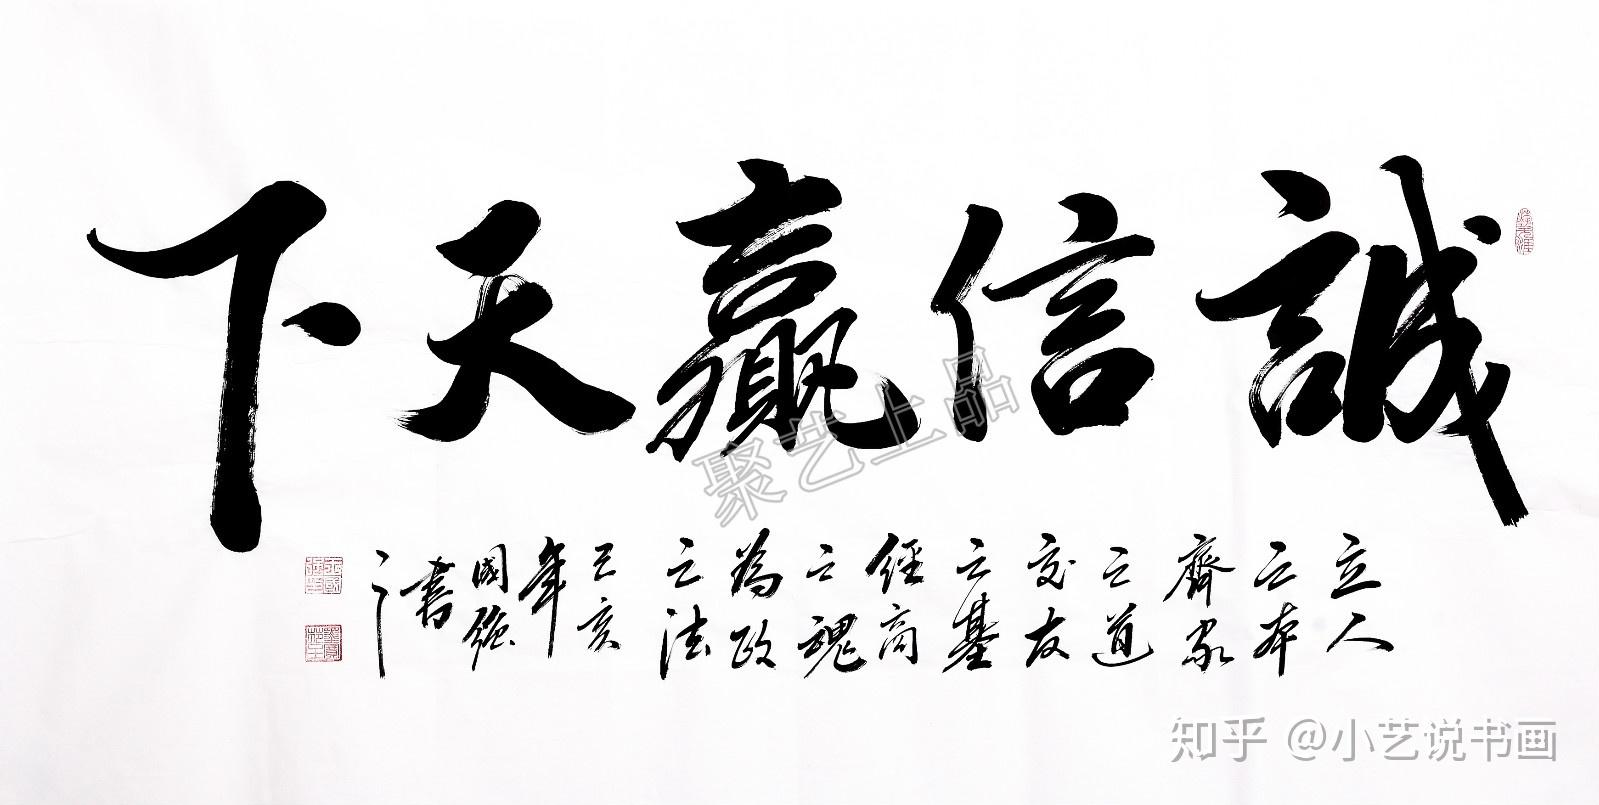 誠信贏天下
立人
之本
齊家
之道
交友
之基
經商
之魂
為政
之法
己亥
年
國強
書
聚艺上品
知乎 @小艺说书画